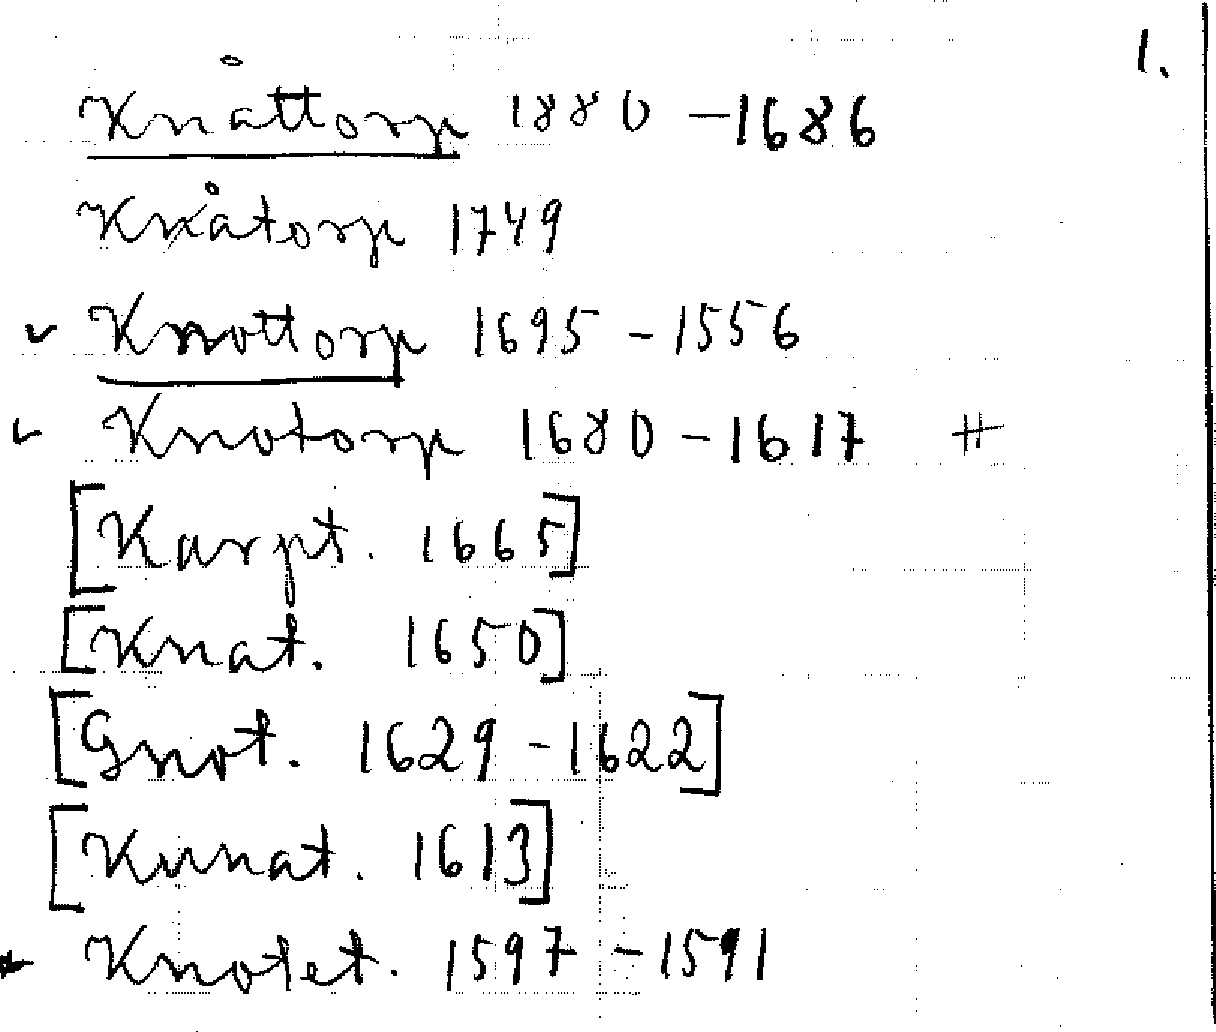 1.
Knåttorp 1880 - 1686
Knåtorp 1749
✓ Knottorp 1695 - 1556
✓ Knotorp 1680 - 1617 #
[Karpt. 1665]
[Knat. 1650]
[Gnot. 1629 - 1622]
[Kunat. 1613]
Knotet. 1597 - 1591